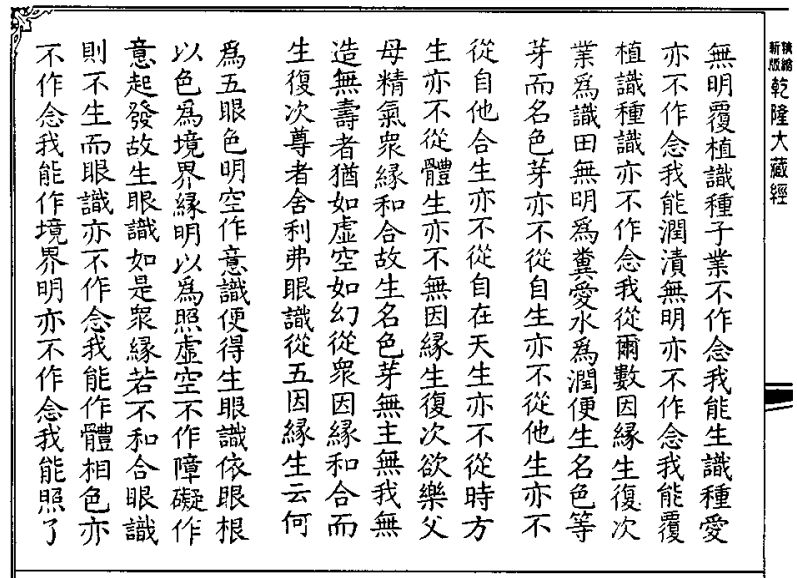 精繪
新版
乾隆大藏經
無明覆植識種子業不作念我能生識種愛
亦不作念我能潤漬無明亦不作念我能覆
植識種識亦不作念我從爾數因緣生復次
業爲識田無明爲糞愛水爲潤便生名色等
芽而名色芽亦不從自生亦不從他生亦不
從自他合生亦不從自在天生亦不從時方
生亦不從體生亦不無因緣生復次欲樂父
母精氣衆緣和合故生名色芽無主無我無
造無壽者猶如虛空如幻從衆因緣和合而
生復次尊者舍利弗眼識從五因緣生云何
爲五眼色明空作意識便得生眼識依眼根
以色爲境界緣明以爲照虛空不作障礙作
意起發故生眼識如是衆緣若不和合眼識
則不生而眼識亦不作念我能作體相色亦
不作念我能作境界明亦不作念我能照了